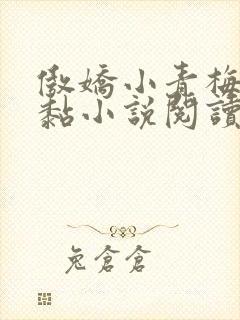 傲嬌小青梅
黏小說閱讀
兔倉倉